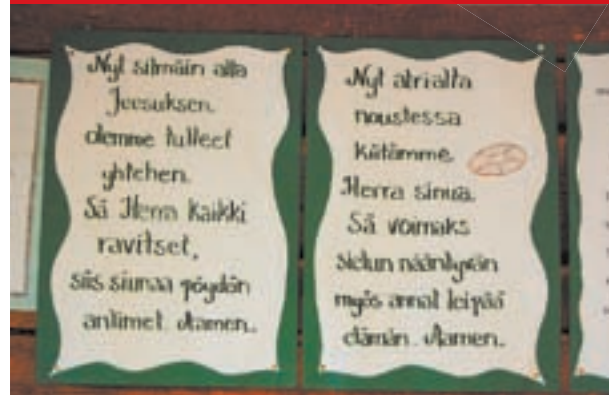 Nyt silmäin alla
Jeesuksen
olemme tulleet
yhtehen.
Sä Herra kaikki
ravitset,
siis siunaa pöydän
antimet. Aamen.
Nyt atrialta
noustessa
kiitämme
Herra sinua.
Sä voimaks
sielun nääntyvän
myös annat leipää
elämän. Aamen.